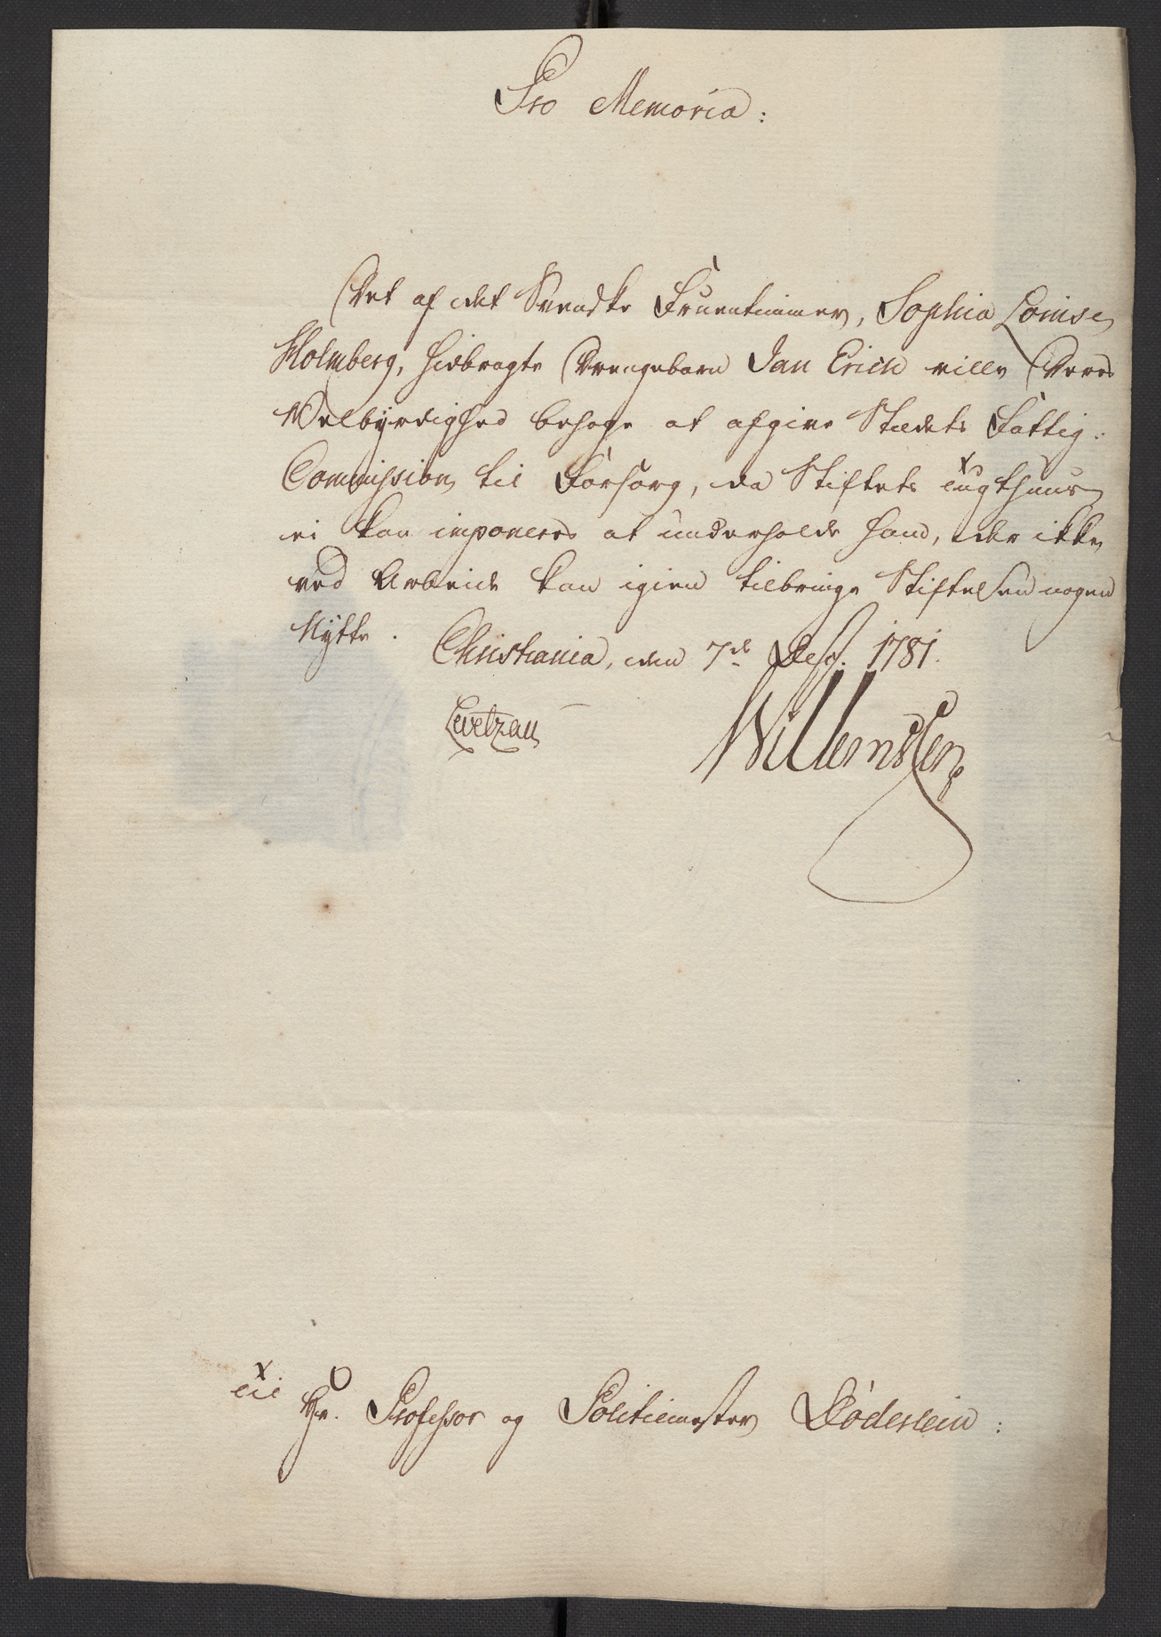 Pro Memoria:
Det af det Svendske Fruentimmer, Sophia Lovise
Holmberg, hidbragte Drengebarn Jan Erich ville Deres
Velbyrdighed behage at afgive Stædets Fattig-
Commission til Forsorg, da Stiftets tugthuus
ei kan imponeres at underholde ham, der ikke
ved Arbeide kan igien tilbringe Stiftelsen nogen
Nytte.
Christiania, den 7de Desbr. 1781.
Levetzau
Willemssen
til
Hr. Professor og Politiemester Dødeslein: